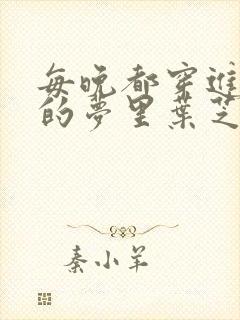 每晚都穿进
的梦里葉芝
秦小羊